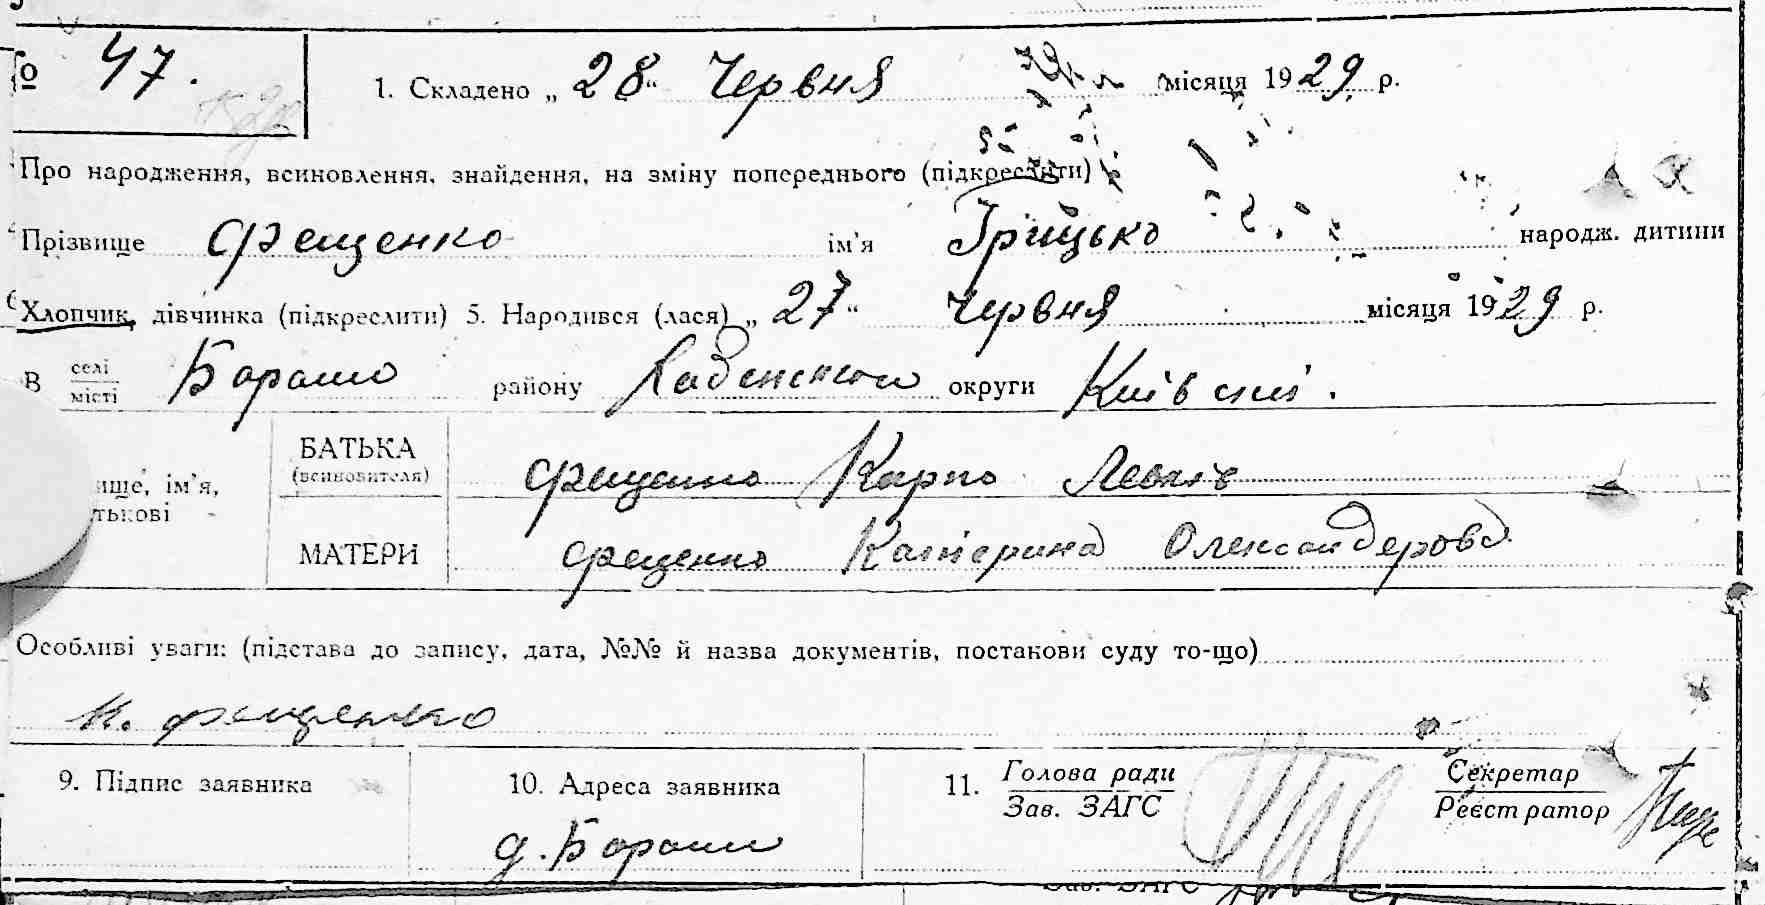 № 47.
1. Складено „ 28 “ Червня місяця 1929 р.
Про народження, всиновлення, знайдення, на зміну попереднього (підкреслити)
Прізвище Фещенко ім'я Грицько народж. дитини
Хлопчик, дівчинка (підкреслити) 5. Народився (лася) „ 27 “ Червня місяця 1929 р.
В селі місті району округи Київській.
БАТЬКА (всиновителя) Фещенко Карпо
ище, ім'я,
тькові
МАТЕРИ Фещенко Катерина Олександрова
Особливі уваги: (підстава до запису, дата, №№ й назва документів, постакови суду то-що)
К. Фещенко
9. Підпис заявника 10. Адреса заявника 11. Голова ради Зав. ЗАГС Секретар Реєстратор
Зав. ЗАГС